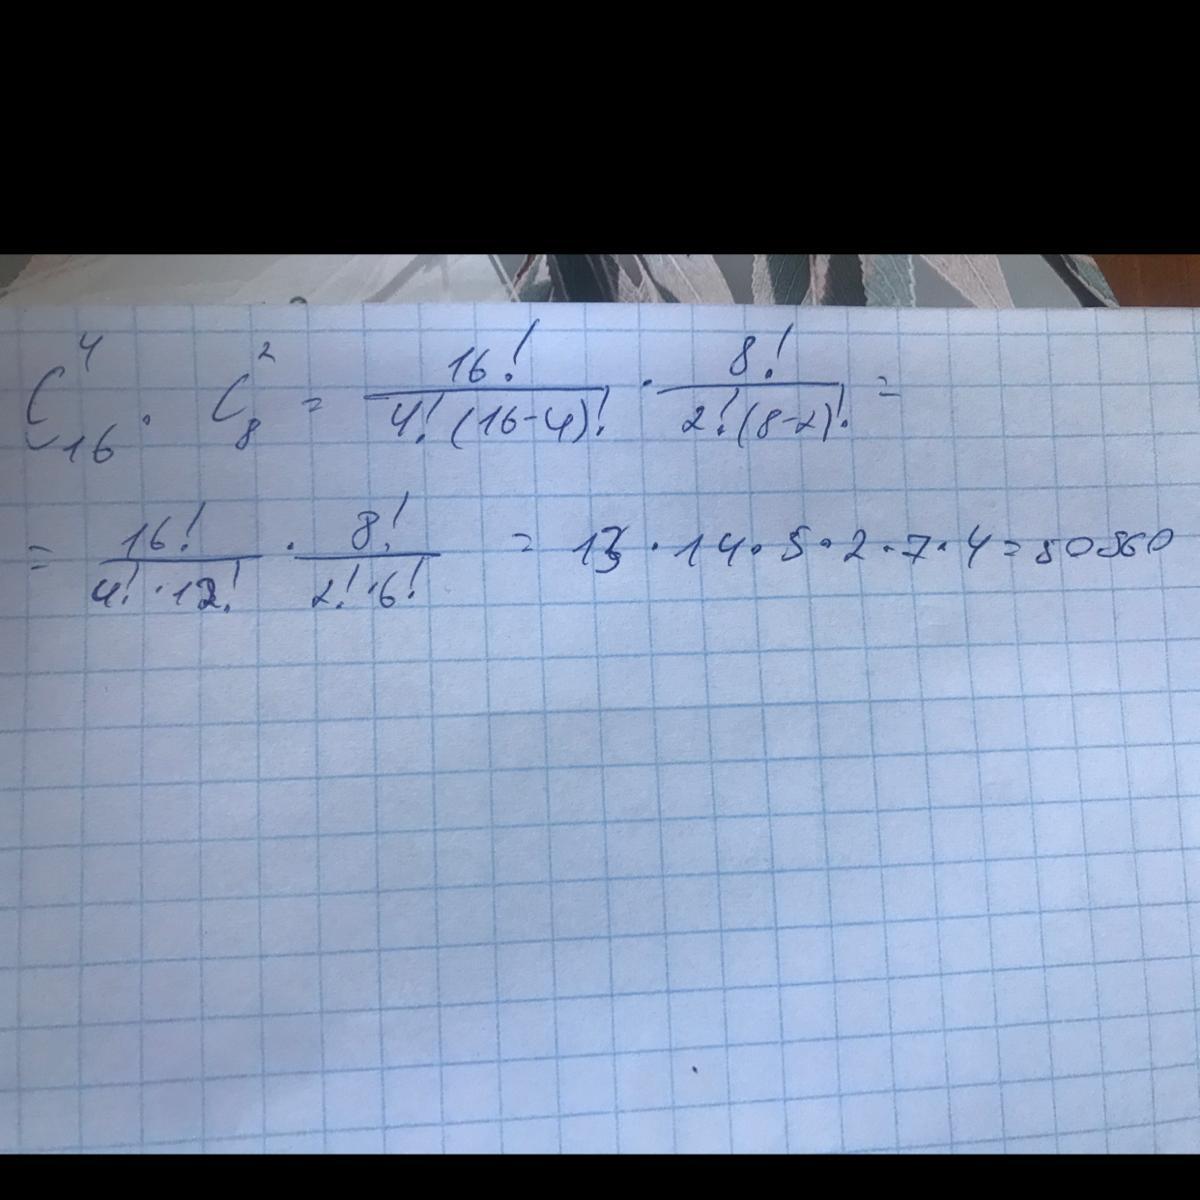 C₁₆⁴ · C₈² = 16! / 4!(16-4)! · 8! / 2!(8-2)! =
= 16! / 4!·12! · 8! / 2!·6! = 13·14·5·2·7·4=50960